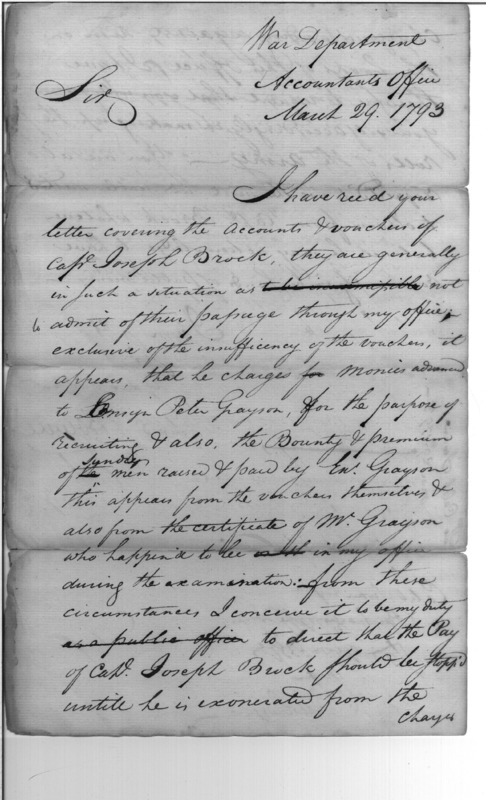 War Department
Accountants Office
March 29. 1793
Sir
I have rec'd your
letter covering the accounts & vouchers of
Capt. Joseph Brock, they are generally
in such a situation as to be inadmissible not
to admit of their passage through my office,
exclusive of the insufficency of the vouchers, it
appears, that he charges for monies advanced
to Ensign Peter Grayson, for the purpose of
recruiting & also, the Bounty & premium
of sundry men raised & paid by Ens. Grayson
this appears from the vouchers themselves &
also from the certificate of Mr. Grayson
who happen'd to be in my office
during the examination: from these
circumstances I conceive it to be my duty
as a public officer to direct that the Pay
of Capt. Joseph Brock should be stopp'd
untile he is exonerated from the
charges